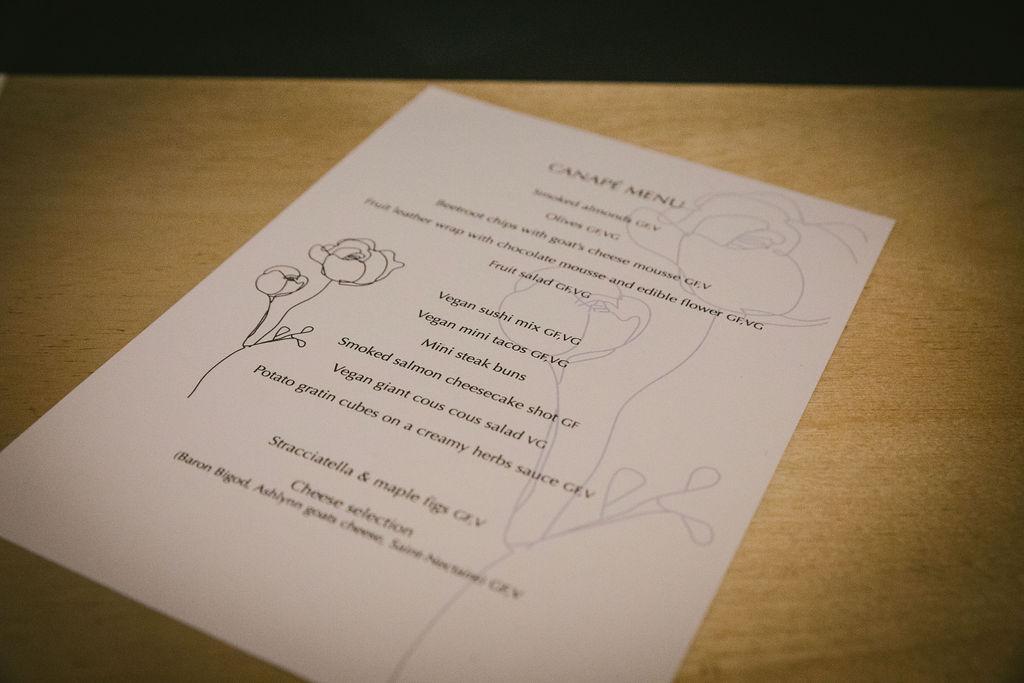 CANAPÉ MENU
Smoked almonds GF,V
Olives GF,VG
Beetroot chips with goat's cheese mousse GF,V
Fruit leather wrap with chocolate mousse and edible flower GF,VG
Fruit salad GF,VG
Vegan sushi mix GF,VG
Vegan mini tacos GF,VG
Mini steak buns
Smoked salmon cheesecake shot GF
Vegan giant cous cous salad VG
Potato gratin cubes on a creamy herbs sauce GF,V
Stracciatella & maple figs GF,V
Cheese selection
(Baron Bigod, Ashlynn goats cheese, Saint-Nectaire) GF,V